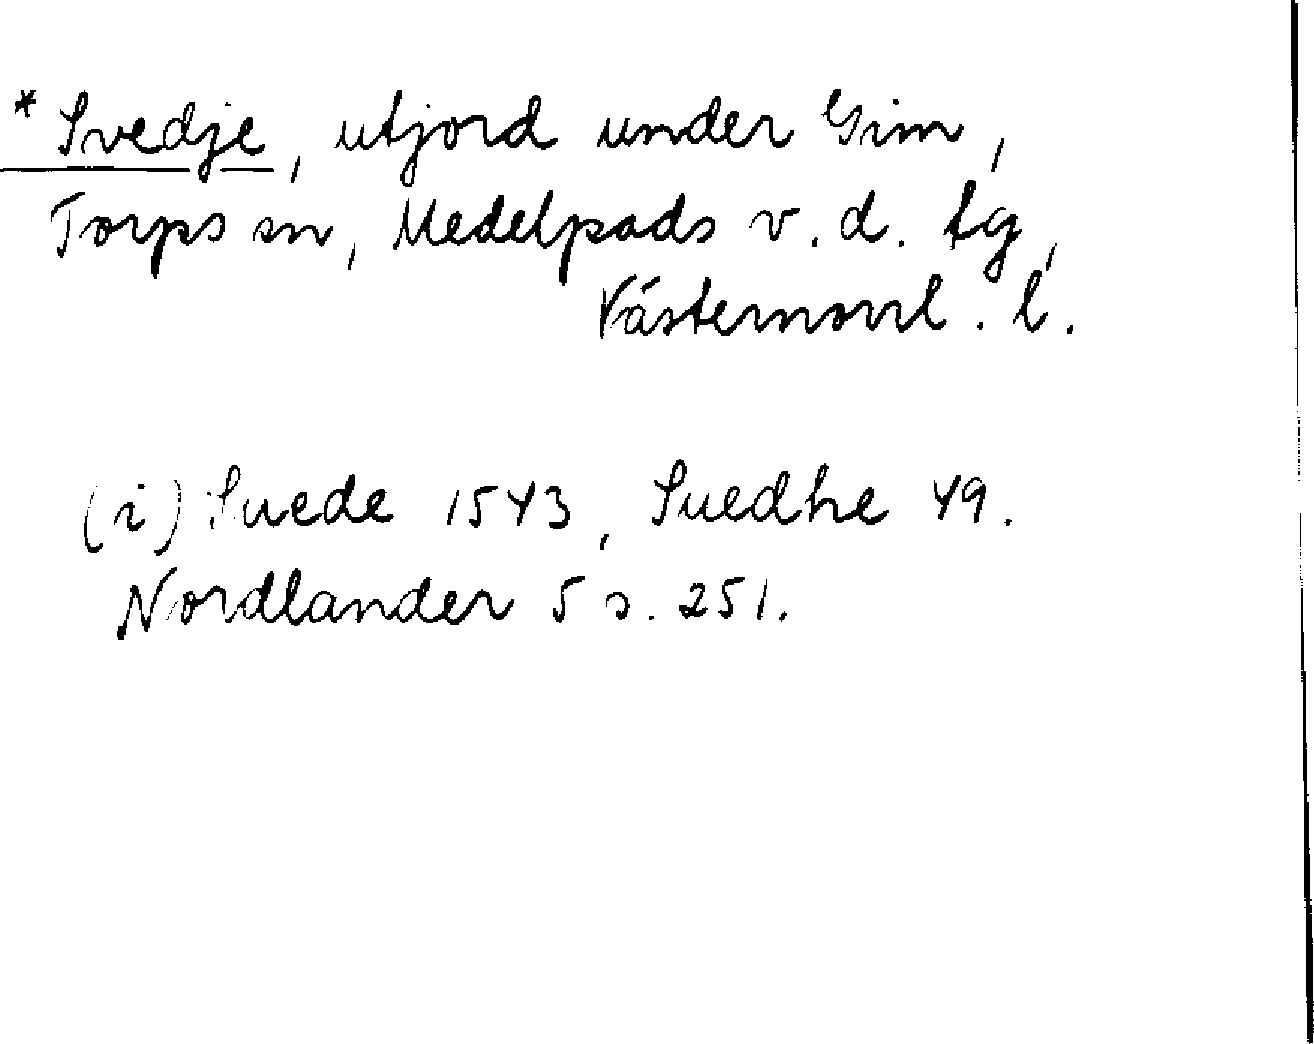 * Svedje, utjord under Gim,
Torps sn, Medelpads v. d. tg,
Västernorrl. l.
(i) Suede 1543, Suedhe 49.
Nordlander 5 s. 251.